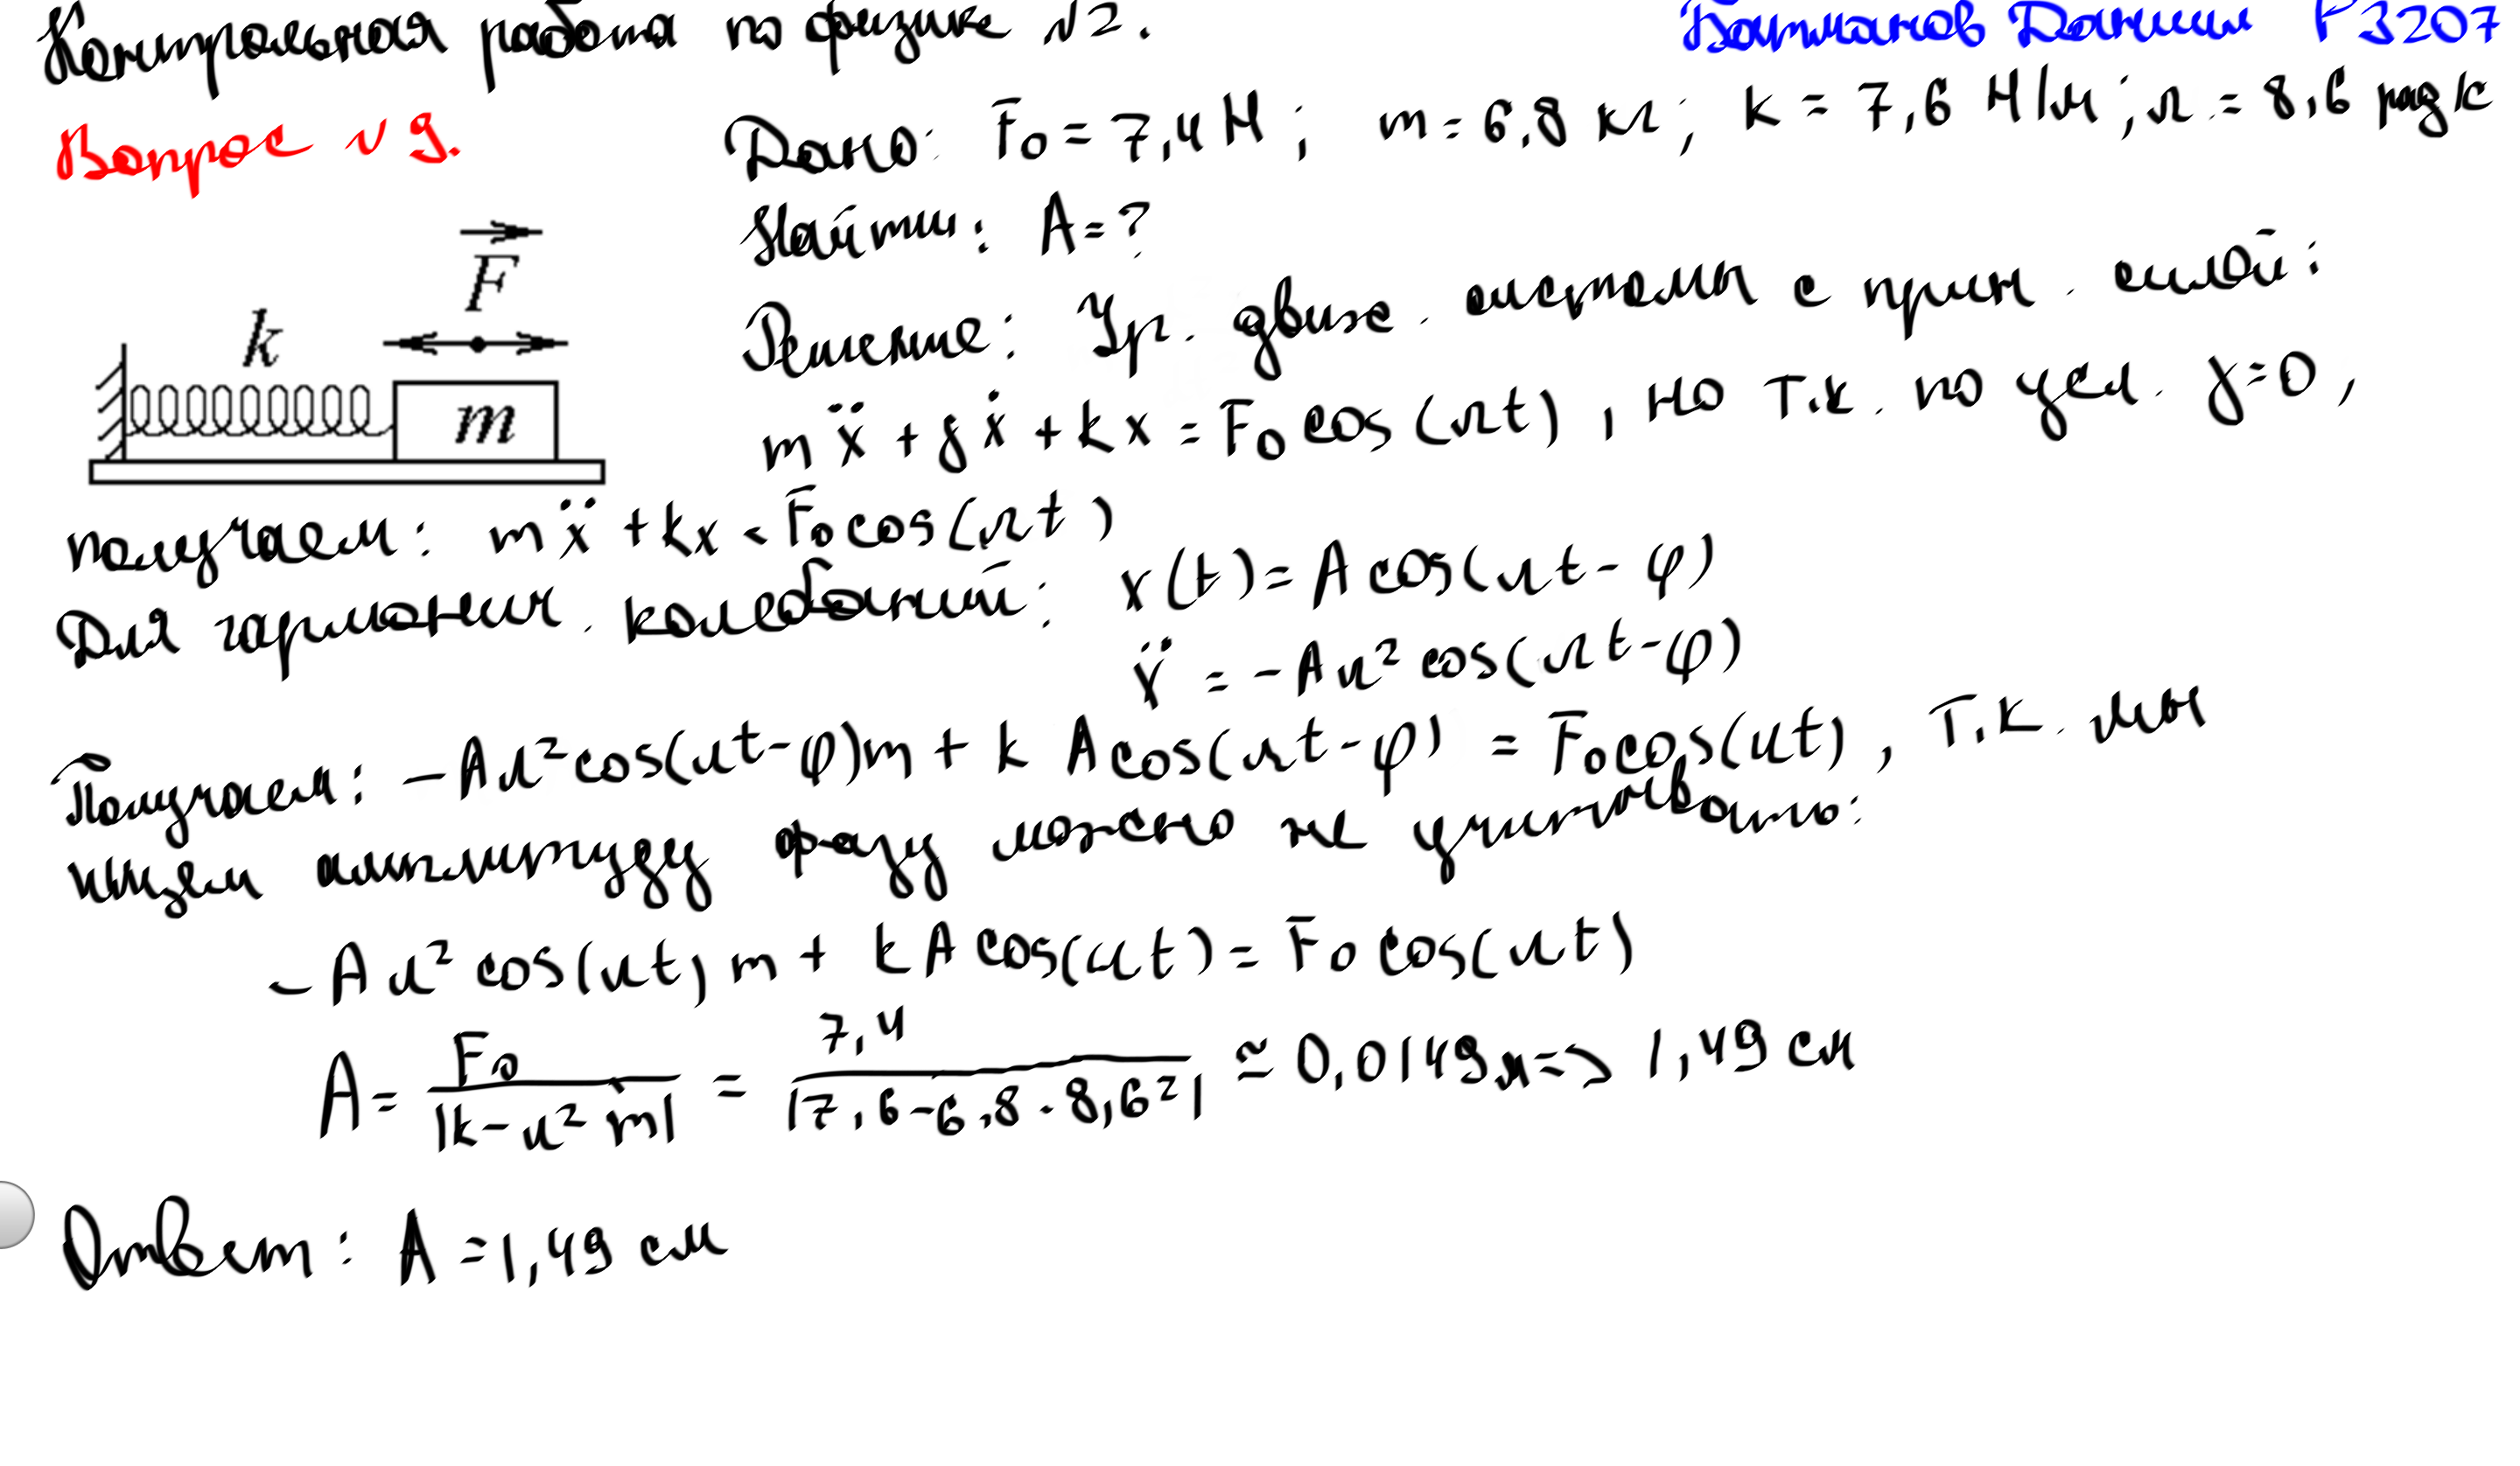 Контрольная работа по физике №2. Данил P3207
Вопрос №9.
Дано: F₀ = 7,4 Н; m = 6,8 кг; k = 7,6 Н/м; Ω = 8,6 рад/с
Найти: A = ?
Решение: Ур. движ. системы с прин. силой:
mẍ + γẋ + kx = F₀cos(Ωt), но т.к. по усл. γ=0,
F
k
m
получаем: mẍ + kx = F₀cos(Ωt)
Для гармонич. колебаний: x(t) = A cos(Ωt - φ)
ẍ = -AΩ² cos(Ωt - φ)
Получаем: -AΩ²cos(Ωt-φ)m + k A cos(Ωt-φ) = F₀cos(Ωt), т.к. мы
ищем амплитуду фазу можно не учитывать:
-AΩ² cos(Ωt)m + kA cos(Ωt) = F₀ cos(Ωt)
A = F₀ / |k - Ω²m| = 7,4 / |7,6 - 6,8 · 8,6²| ≃ 0,0149 м => 1,49 см
Ответ: A = 1,49 см